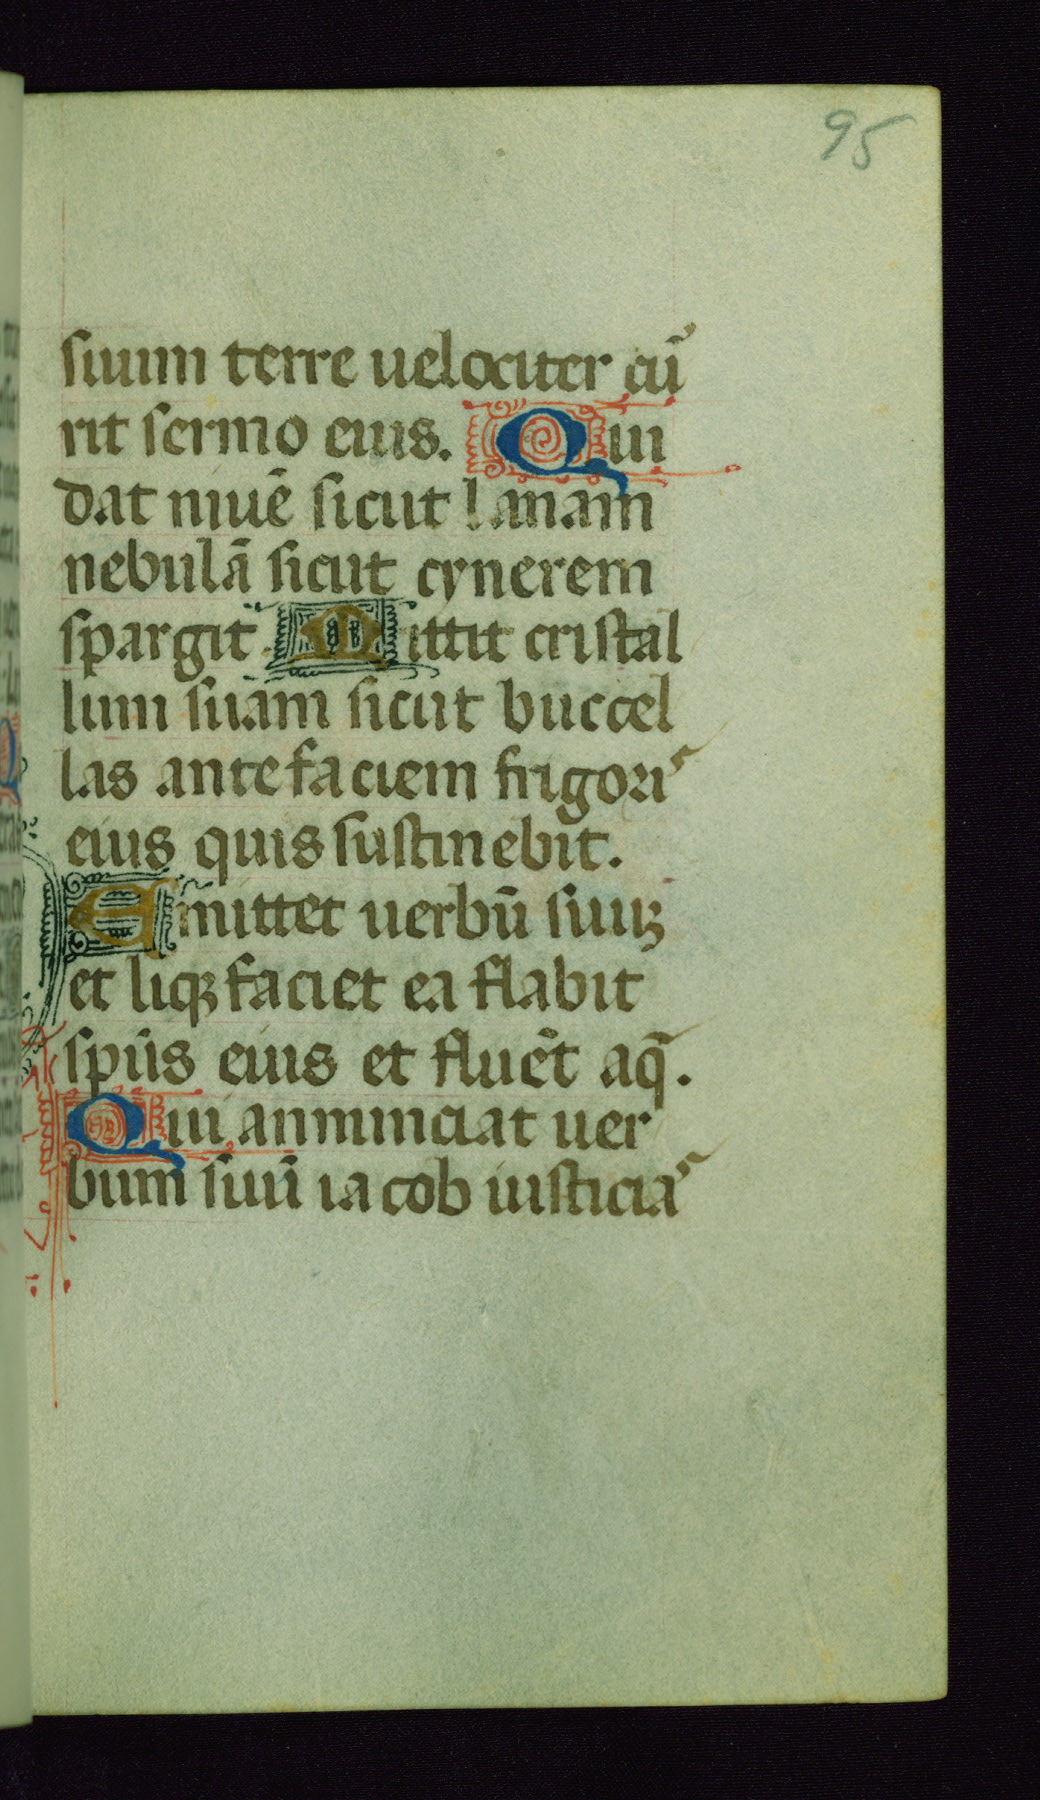 95
suum terre uelociter cũ
rit sermo eius. Qui
dat niuẽ sicut lanam
nebulã sicut cynerem
spargit. Mittit cristal
lum suam sicut buccel
las ante faciem frigori᷒
eius quis sustinebit.
Emittet uerbũ suuꝫ
et liqꝫfaciet ea flabit
sp̃us eius et fluẽt aq̃.
Qui annunciat uer
bum suũ iacob iusticia᷒